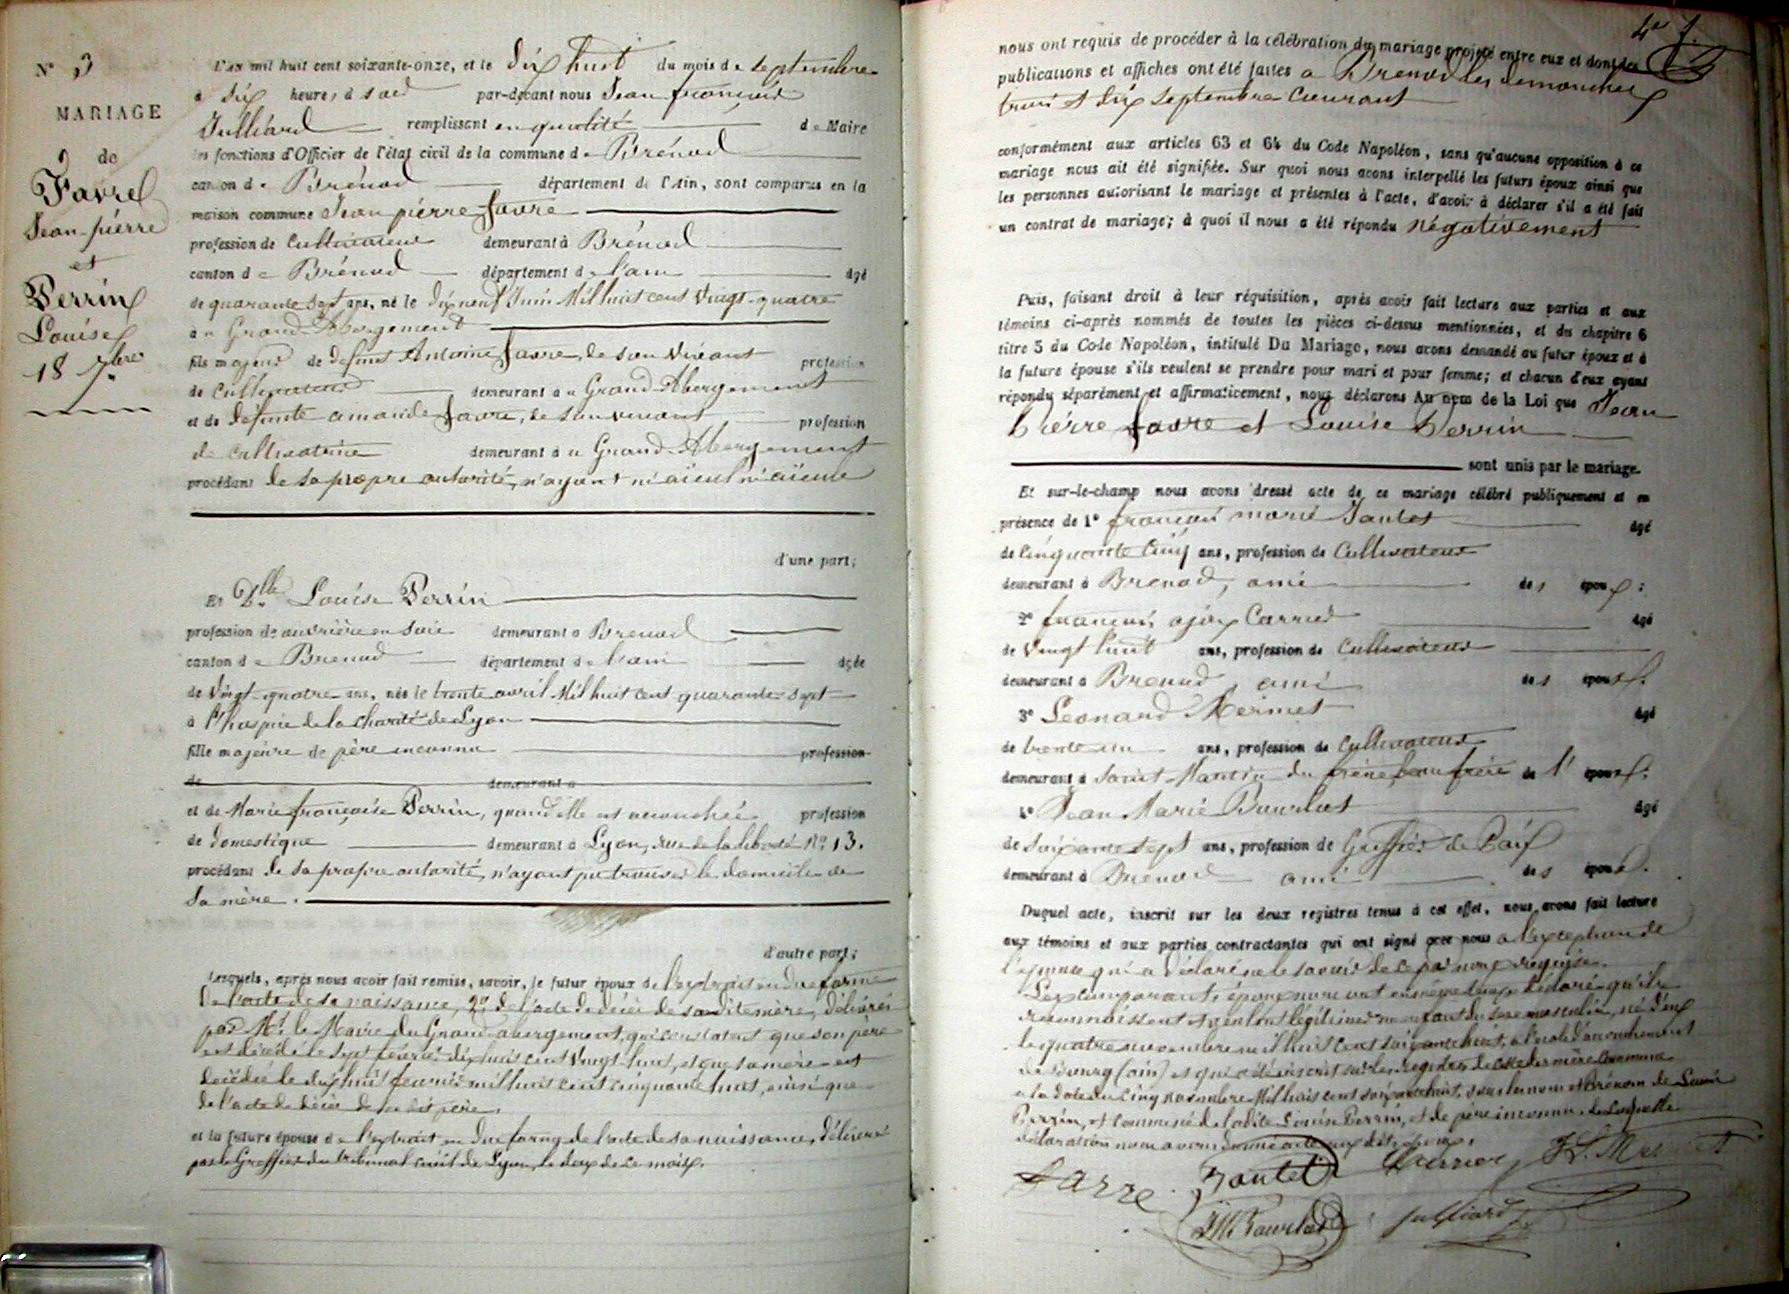 N° 3
MARIAGE
de
Favre
Jean-pierre
et
Perrin
Louise
18 7bre
L'an mil huit cent soixante-onze, et le dix huit du mois de septembre
à dix heures du par-devant nous Jean françois
Julliard remplissant en qualité de Maire
les fonctions d'Officier de l'état civil de la commune de Brénod
canton de Brénod département de l'Ain, sont comparus en la
maison commune Jean pierre favre
profession de Cultivateur demeurant à Brénod
canton de Brénod département de l'ain âgé
de quarante sept ans, né le dix neuf Juin Mil huit cent Vingt-quatre
au Grand Abergement
fils majeur de défunt Antoine favre, de son vivant profession
de cultivateur demeurant au Grand-Abergement
et de défunte amande favre, de son vivant profession
de cultivatrice demeurant au Grand-Abergement
procédant de sa propre autorité, n'ayant ni aïeul ni aïeule
d'une part;
Et Dlle Louise Perrin
profession de ouvrière en soie demeurant à Brenod
canton de Brenod département de l'ain âgée
de Vingt-quatre ans, née le trente avril Mil huit cent quarante-sept
à l'hospice de la charité de Lyon
fille majeure de père inconnu profession
de demeurant à
et de Marie françoise Perrin, quand elle est accouchée profession
de domestique demeurant à Lyon, rue de la liberté N° 13.
procédant de sa propre autorité, n'ayant pu trouver le domicile de
sa mère.
d'autre part;
Lesquels, après nous avoir fait remise, savoir, le futur époux de l'extrait en due forme
de l'acte de sa naissance, 2° de l'acte de décès de sa dite mère, délivrés
par Mr le Maire du Grand abergement, qui constatent que son père
est décédé le sept février dix huit cent vingt-huit, et que sa mère est
décédée le dix huit février mil huit cent cinquante huit, ainsi que
de l'acte de décès de sa dit père.
et la future épouse de l'extrait en due forme de l'acte de sa naissance, délivré
par le Greffier du tribunal civil de Lyon, le deux de ce mois.
nous ont requis de procéder à la célébration du mariage projeté entre eux et dont les
publications et affiches ont été faites à Brenod les dimanches
trois et dix septembre Courant
conformément aux articles 63 et 64 du Code Napoléon, sans qu'aucune opposition à ce
mariage nous ait été signifiée. Sur quoi nous avons interpellé les futurs époux ainsi que
les personnes autorisant le mariage et présentes à l'acte, d'avoir à déclarer s'il a été fait
un contrat de mariage; à quoi il nous a été répondu négativement
Puis, faisant droit à leur réquisition, après avoir fait lecture aux parties et aux
témoins ci-après nommés de toutes les pièces ci-dessus mentionnées, et du chapitre 6
titre 5 du Code Napoléon, intitulé Du Mariage, nous avons demandé au futur époux et à
la future épouse s'ils veulent se prendre pour mari et pour femme; et chacun d'eux ayant
répondu séparément et affirmativement, nous déclarons Au nom de la Loi que Jean
Pierre favre et Louise Perrin
sont unis par le mariage.
Et sur-le-champ nous avons dressé acte de ce mariage célébré publiquement et en
présence de 1° françois marie Jantet âgé
de Cinquante cinq ans, profession de Cultivateur
demeurant à Brenod, ami des époux:
2° françois ajax Carrier âgé
de Vingt huit ans, profession de Cultivateur
demeurant à Brenod, ami des époux.
3° Leonard Mermet âgé
de trente un ans, profession de Cultivateur
demeurant à Saint Martin du frêne, beau frère de l' époux.
4° Jean Marie Bourlot âgé
de soixante sept ans, profession de Greffier de Paix
demeurant à Brenod ami des époux.
Duquel acte, inscrit sur les deux registres tenus à cet effet, nous avons fait lecture
aux témoins et aux parties contractantes qui ont signé avec nous à l'exception de
l'épouse qui a déclaré ne le savoir de ce par nous requise.
Les comparants époux nous ont en même temps déclaré qu'ils
reconnaissent et veulent légitimer un enfant du sexe masculin, né d'eux
le quatre novembre mil huit cent soixante huit, à l'école d'accouchement
de Bourg (ain) et qui a été inscrit sur les registres de cette dernière commune
à la date du Cinq Novembre Mil huit cent soixante huit, sous les nom et Prénom de Louis
Perrin, et comme né de la dite Louise Perrin, et de père inconnu. De laquelle
déclaration nous avons donné acte aux dits époux.
Favre Jantet Carrier J.L. Mermet
JM Bourlot Julliard